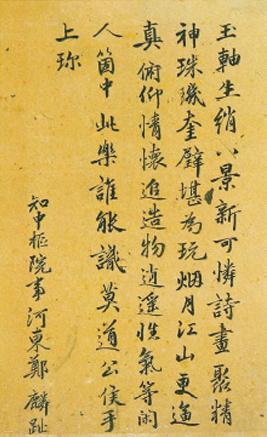 玉軸生綃八景新可憐詩畫聚精
神珠璣奎璧堪為玩烟月江山更逼
真俯仰情懷追造物逍遙性氣等閑
人箇中此樂誰能識莫道公侯手
上珎
知中樞院事河東鄭麟趾